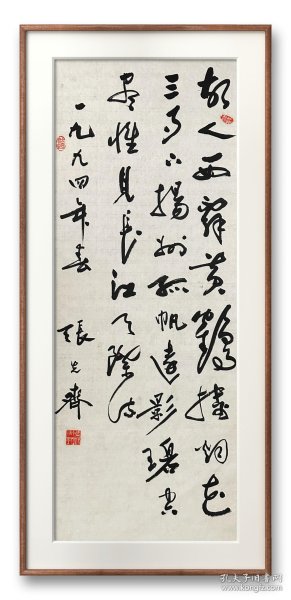 故人西辞黄鹤楼烟花
三月下扬州孤帆远影碧空
尽惟见长江天际流
一九九四年春 张
孔夫子旧书网
www.kongfz.com